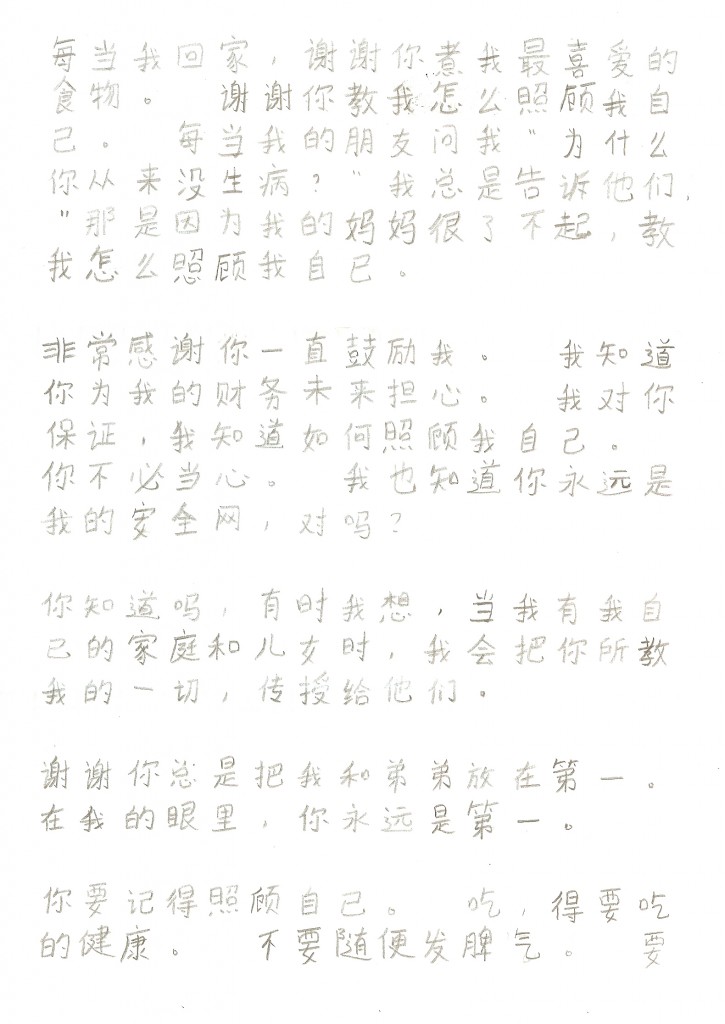 每当我回家，谢谢你煮我最喜爱的
食物。 谢谢你教我怎么照顾我自
己。 每当我的朋友问我"为什么
你从来没生病？" 我总是告诉他们，
"那是因为我的妈妈很了不起，教
我怎么照顾我自己。
非常感谢你一直鼓励我。 我知道
你为我的财务未来担心。 我对你
保证，我知道如何照顾我自己。
你不必当心。 我也知道你永远是
我的安全网，对吗？
你知道吗，有时我想，当我有我自
己的家庭和儿女时，我会把你所教
我的一切，传授给他们。
谢谢你总是把我和弟弟放在第一。
在我的眼里，你永远是第一。
你要记得照顾自己。 吃，得要吃
的健康。 不要随便发脾气。 要